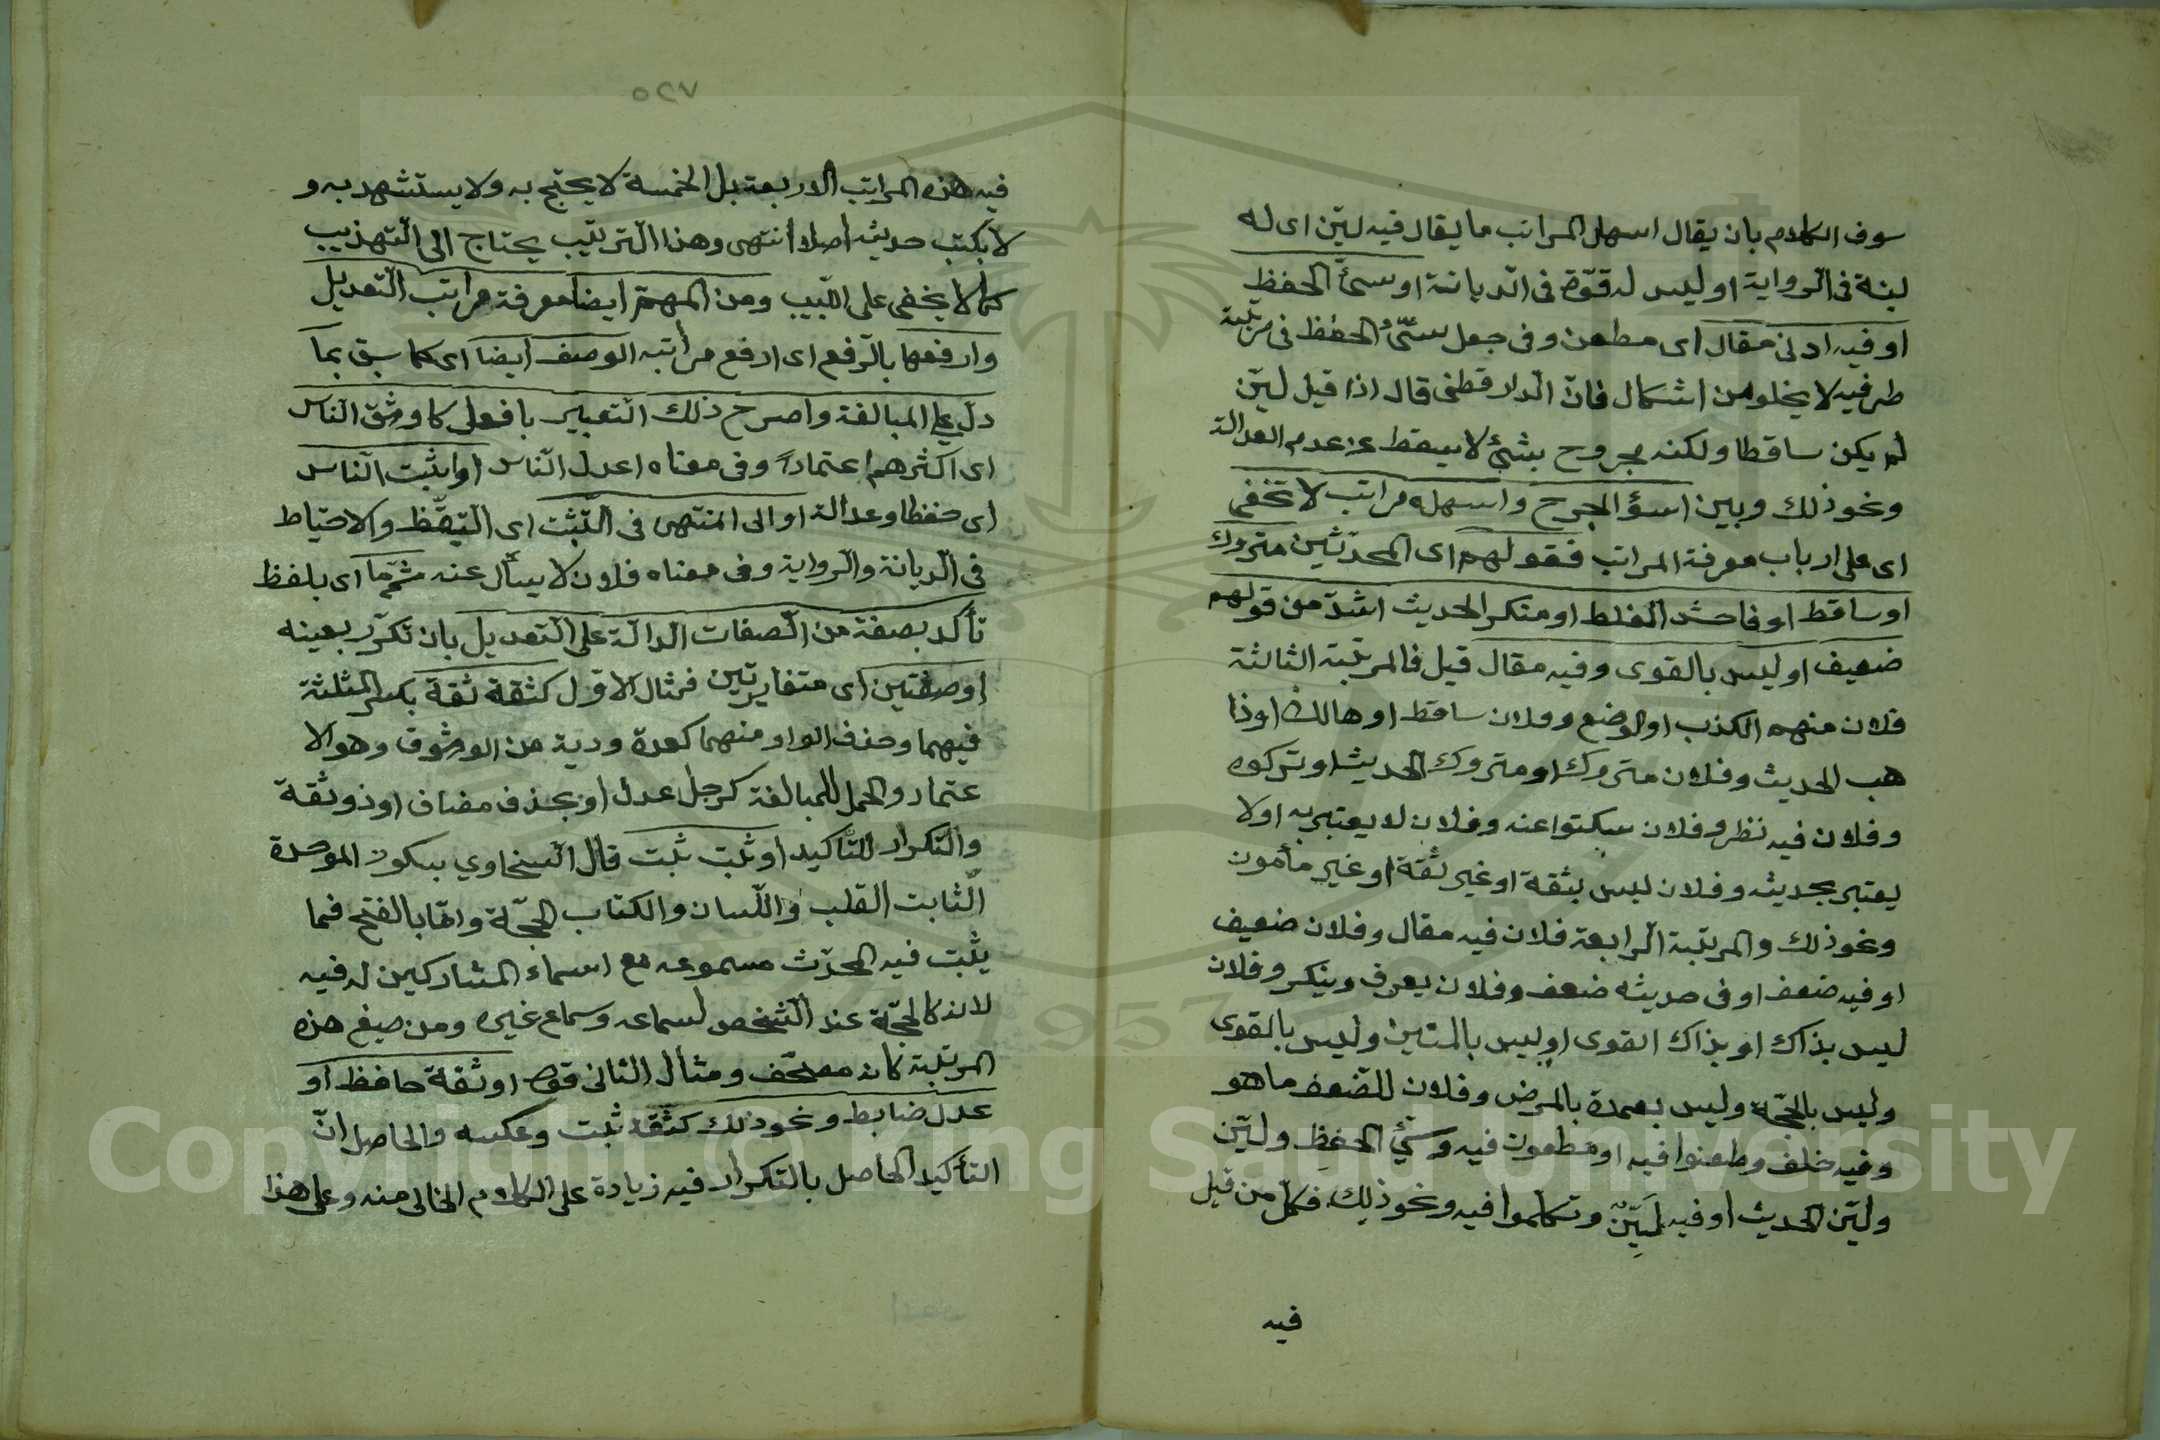 سوف الكلام بان يقال اسهل المراتب ما يقال فيه ليّن اى له
لينة فى الرواية او ليس له قوّة فى الديانة او سئ الحفظ
او فيه ادنى مقال اى مطعن وفى جعل سئ الحفظ فى مرتبة
طرفيه لا يخلو من اشكال فان الدارقطنى قال اذا قيل ليّن
لم يكن ساقطا ولكنه مجروح بشئ لا يسقط عن عدم العدالة
ونحو ذلك وبين اسؤ الجرح واسهله مراتب لا تخفى
اى على ارباب معرفة المراتب فقولهم اى المحدّثين متروك
او ساقط او فاحش الغلط او منكر الحديث اشدّ من قولهم
ضعيف او ليس بالقوى وفيه مقال قيل فالمرتبة الثالثة
فلان متهم الكذب او الوضع وفلان ساقط او هالك او ذا
هب الحديث وفلان متروك او متروك الحديث او تركوه
وفلان فيه نظر وفلان سكتوا عنه وفلان لا يعتبر به او لا
يعتبر بحديثه وفلان ليس بثقة او غير ثقة او غير مأمون
ونحو ذلك والمرتبة الرابعة فلان فيه مقال وفلان ضعيف
او فيه ضعف او فى حديثه ضعف وفلان يعرف وينكر وفلان
ليس بذاك او بذاك القوى او ليس بالمتين وليس بالقوى
وليس بالحجّة وليس بعمدة بالمرض وفلان للضعف ما هو
وفيه خلف وطعنوا فيه او مطعون فيه وسئ الحفظ وليّن
وليّن الحديث او فيه لَيِّنٌ وتكلموا فيه ونحو ذلك فكل من قيل
فيه
٥٢٧
فيه هذه المراتب الاربعة بل الخمسة لا يحتج به ولا يستشهد به و
لا يكتب حديثه اصلا انتهى وهذا الترتيب يحتاج الى التهذيب
كما لا يخفى على اللبيب ومن المهم ايضا معرفة مراتب التعديل
وارفعها بالرفع اى ارفع مراتبه الوصف ايضا اى كما سبق بما
دلّ على المبالغة واصرح ذلك التعبير بافعل كاوثق الناس
اى اكثرهم اعتمادًا وفى معناه اعدل الناس او اثبت الناس
اى حفظا وعدالة او الى المنتهى فى التثبت اى التيقظ والاحتياط
فى الديانة والرواية وفى معناه فلان لا يسأل عنه ثمّ ما اى بلفظ
تأكد بصفة من الصفات الدالة على التعديل بان تكرّر بعينه
او صفتين اى متغايرتين فمثال الاوّل كثقة ثقة بكسر المثلثة
فيهما وحذف الواو منهما كعدة ودية من الوثوق وهو الا
عتماد والحمل للمبالغة كرجل عدل او بحذف مضاف او ذو ثقة
والتكرار للتأكيد او ثبت ثبت قال السخاوي بسكون الموحدة
الثابت القلب واللسان والكتاب الحجّة وامّا بالفتح فما
يثبت فيه المحدّث مسموعه مع اسماء المشاركين له فيه
لانه كالحجّة عند الشخص لسماعه وسماع غيره ومن صيغ هذه
المرتبة كانه مصحّف ومثال الثانى قوله او ثقة حافظ او
عدل ضابط ونحو ذلك كثقة ثبت وعكسه والحاصل انّ
التأكيد الحاصل بالتكرار فيه زيادة على الكلام الخالى منه وعلى هذا
Copyright © King Saud University
1957